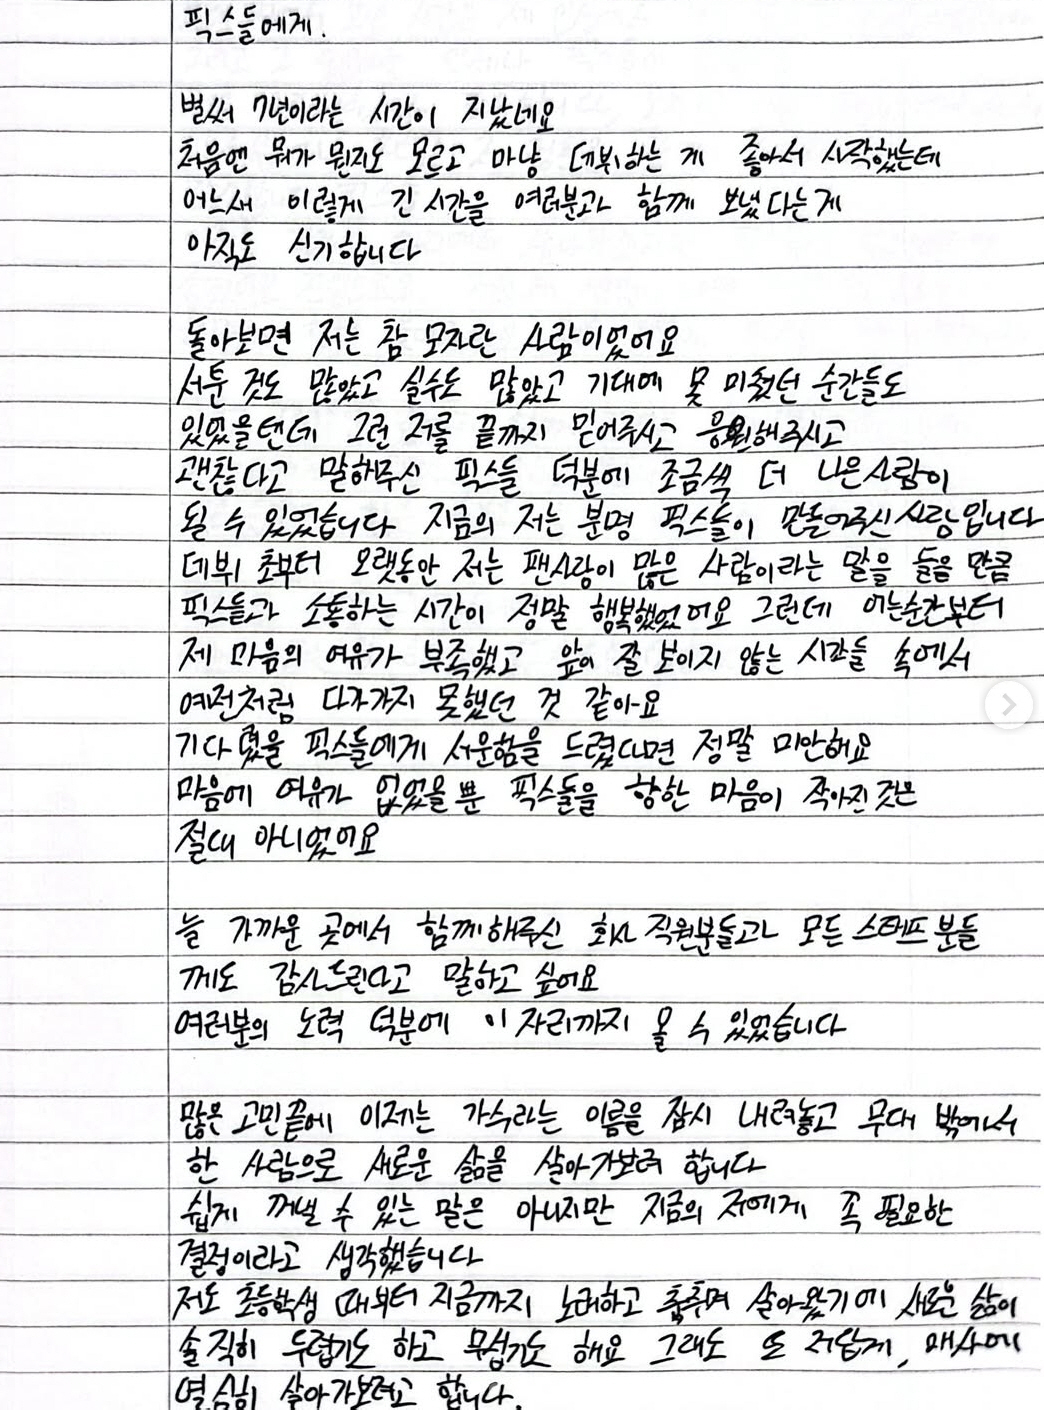 픽스들에게.
벌써 7년이라는 시간이 지났네요
처음엔 뭐가 뭔지도 모르고 마냥 데뷔하는 게 좋아서 시작했는데
어느새 이렇게 긴 시간을 여러분과 함께 보냈다는게
아직도 신기합니다
돌아보면 저는 참 모자란 사람이었어요
서툰 것도 많았고 실수도 많았고 기대에 못 미쳤던 순간들도
있었을텐데 그런 저를 끝까지 믿어주시고 응원해주시고
괜찮다고 말해주신 픽스들 덕분에 조금씩 더 나은사람이
될 수 있었습니다 지금의 저는 분명 픽스들이 만들어주신사람입니다
데뷔 초부터 오랫동안 저는 팬사랑이 많은 사람이라는 말을 들을 만큼
픽스들과 소통하는 시간이 정말 행복했었어요 그런데 어느순간부터
제 마음의 여유가 부족했고 앞이 잘 보이지 않는 시간들 속에서
예전처럼 다가가지 못했던 것 같아요
기다렸을 픽스들에게 서운함을 드렸다면 정말 미안해요
마음에 여유가 없었을뿐 픽스들을 향한 마음이 작아진것은
절대 아니었어요
늘 가까운 곳에서 함께해주신 회사 직원분들과 모든 스태프분들
께도 감사드린다고 말하고 싶어요
여러분의 노력 덕분에 이 자리까지 올 수 있었습니다
많은 고민끝에 이제는 가수라는 이름을 잠시 내려놓고 무대 밖에서
한 사람으로 새로운 삶을 살아가보려 합니다
쉽게 꺼낼 수 있는 말은 아니지만 지금의 저에게 꼭 필요한
결정이라고 생각했습니다
저도 초등학생 때부터 지금까지 노래하고 춤추며 살아왔기에 새로운 삶이
솔직히 두렵기도 하고 무섭기도 해요 그래도 또 저답게, 매사에
열심히 살아가보려고 합니다.